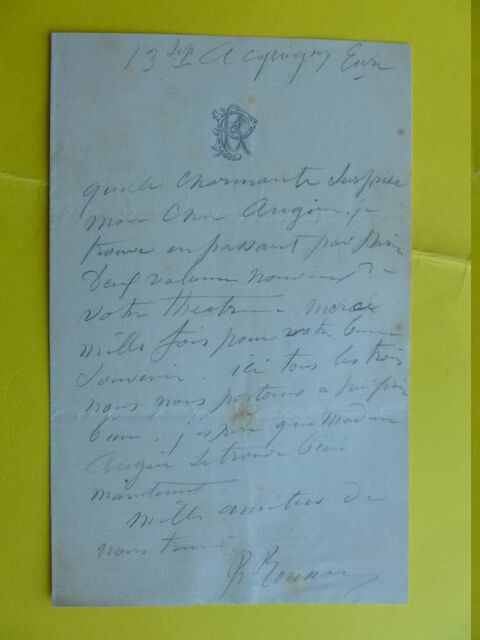 13 Sept Acquigny Eure
PR
quelle charmante surprise
mon cher Augier. je
trouve en passant par Paris
deux volumes nouveaux de
votre theatre. merci
mille fois pour votre bon
souvenir. ici tous les trois
nous nous portons à peu près
bien. j'espere que Madame
Augier se trouve bien
maintenant
mille amitiés de
nous trois
Ph Rousseau